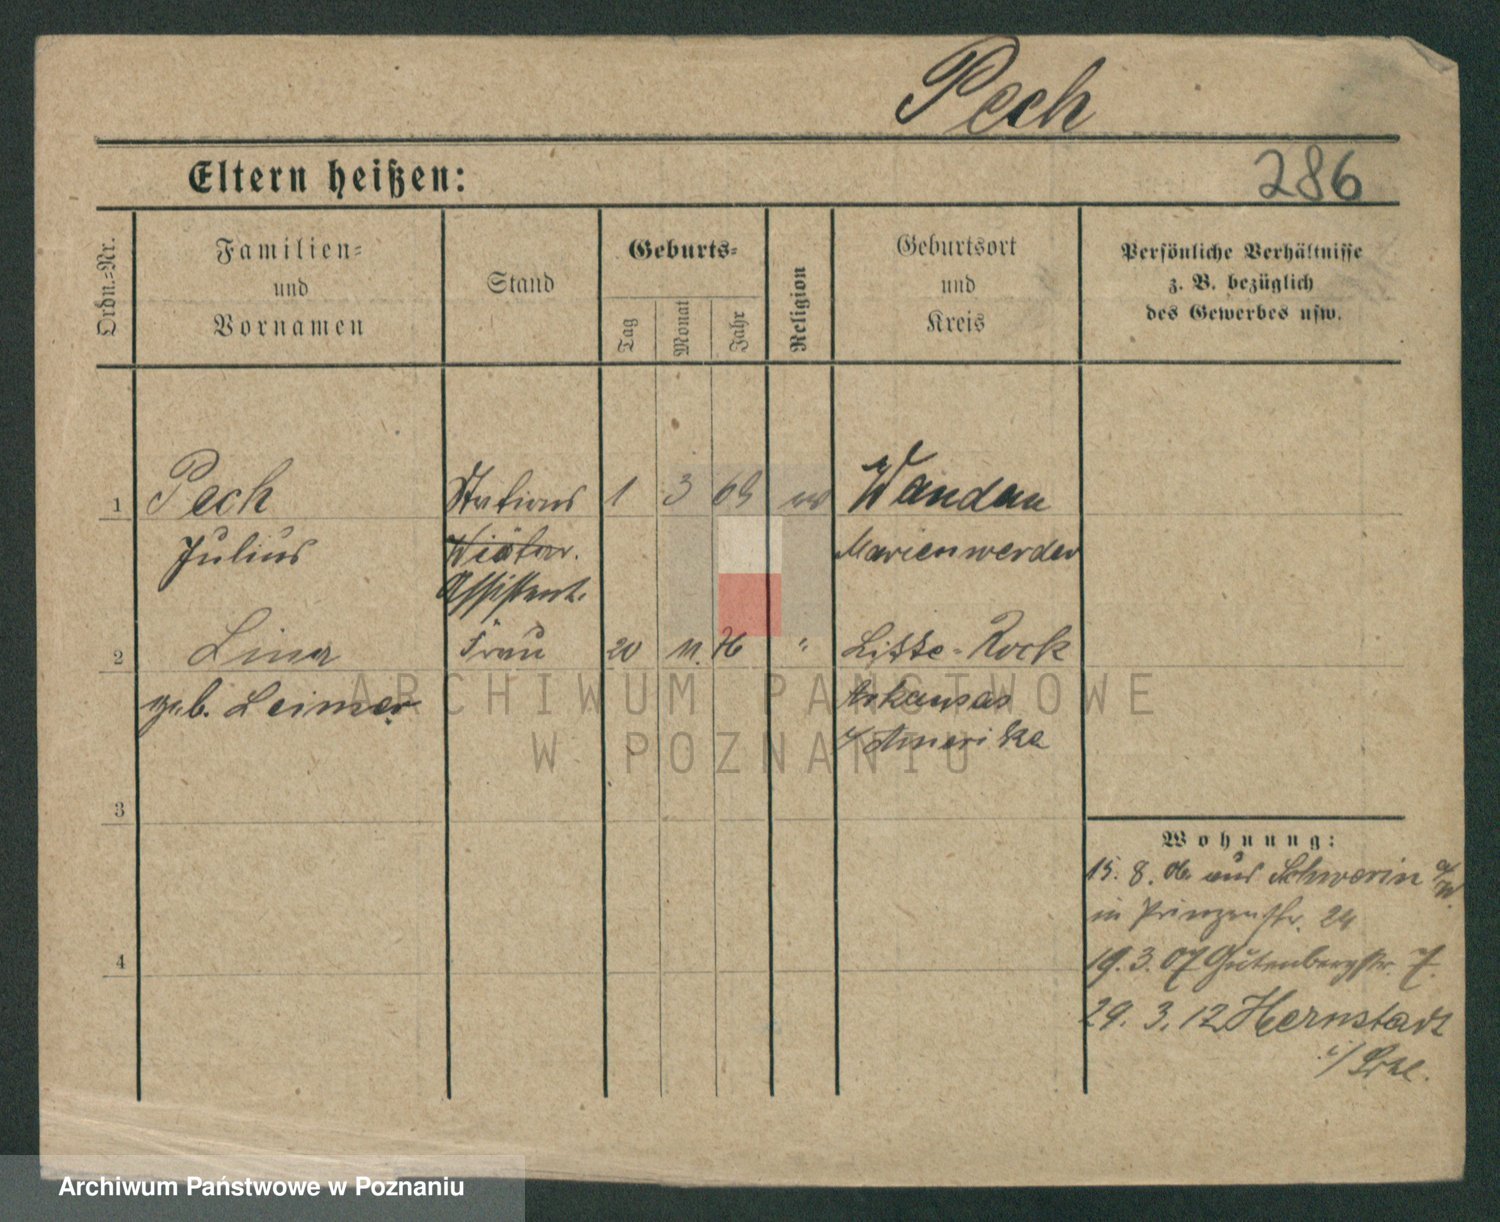 Pech
Eltern heißen:
286
Ordn.-Nr.
Familien-
und
Vornamen
Stand
Geburts-
Tag
Monat
Jahr
Religion
Geburtsort
und
Kreis
Persönliche Verhältnisse
z. B. bezüglich
des Gewerbes usw.
1 Pech Stations 1 3 69 Wandau
Julius Marienwerder
Assistent.
2 Lina Frau 20 11. 76 " Little-Rock
geb. Leimer Arkansas
Amerika
3
4
Wohnung:
15. 8. 06 aus Schwerin a/W.
in Prinzenstr. 24
19. 3. 07 Gutenbergstr. 7.
29. 3. 12 Hernstadt
i/Schl.
ARCHIWUM PAŃSTWOWE
W POZNANIU
Archiwum Państwowe w Poznaniu